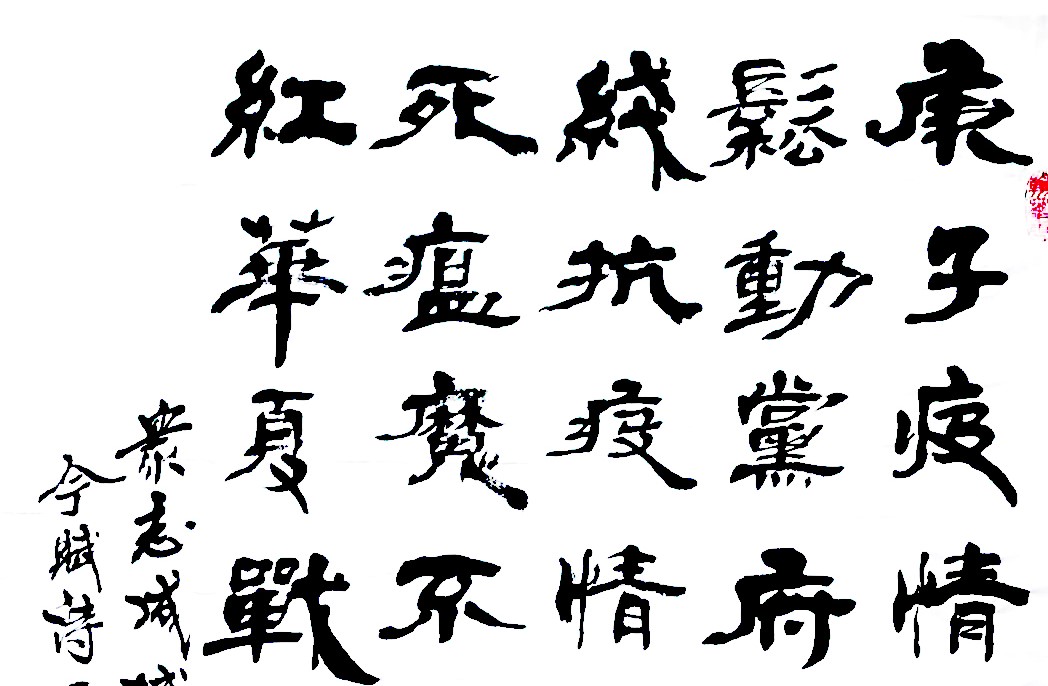 庚子疫情
鬆動黨府
綫抗疫情
死瘟魔不
紅華夏戰
衆志成城
今賦詩